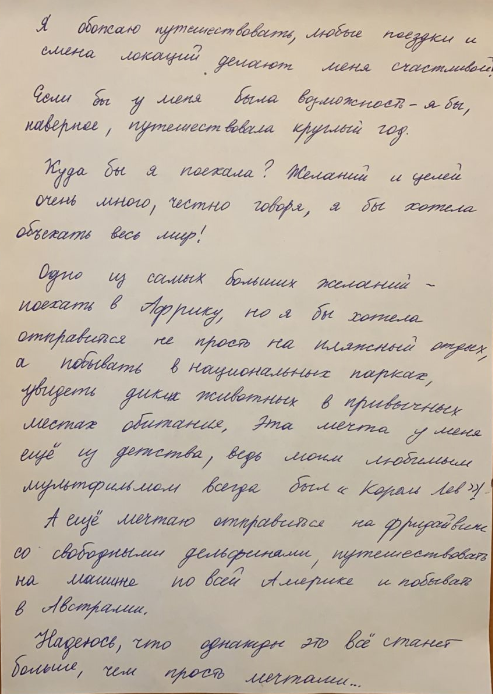 Я обожаю путешествовать, любые поездки и
смена локаций делают меня счастливой!
Если бы у меня была возможность - я бы,
наверное, путешествовала круглый год.
Куда бы я поехала? Желаний и целей
очень много, честно говоря, я бы хотела
объехать весь мир!
Одно из самых больших желаний -
поехать в Африку, но я бы хотела
отправится не просто на пляжный отдых,
а побывать в национальных парках,
увидеть диких животных в привычных
местах обитания. Эта мечта у меня
ещё из детства, ведь моим любимым
мультфильмом всегда был «Король Лев»!
А ещё мечтаю отправится на фридайвинг
со свободными дельфинами, путешествовать
на машине по всей Америке и побывать
в Австралии.
Надеюсь, что однажды это всё станет
больше, чем просто мечтами...